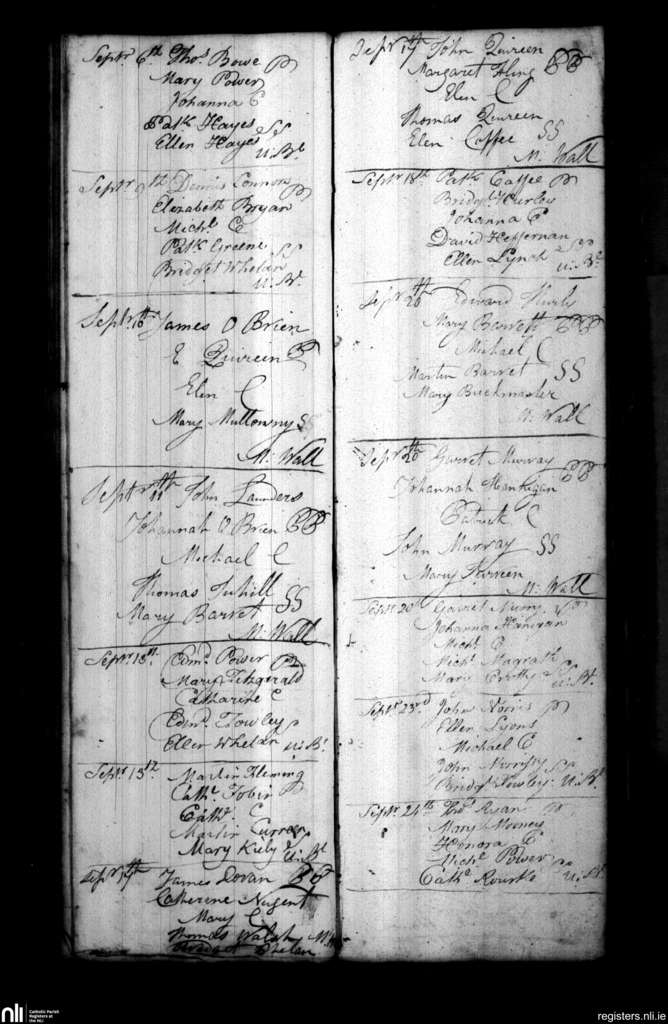 Septr 6th Thos Bowe P
Mary Power
Johanna C
Patk Hayes SS
Ellen Hayes
U. Bt
Septr 9th Dennis Connors P
Elizabeth Bryan
Michl C
Patk Greene SS
Bridget Whelan
U. Bt
Septr 10th James O Brien
E Quireen P
Elen C
Mary Mullowny SS
M. Wall
Septr 11th John Landers
Johannah O Brien PP
Michael C
Thomas Tuhill SS
Mary Barret
M. Wall
Septr 13th Edmd Power P
Mary Fitzgerald
Catharine C
Edmd
Ellen Whelan U. Bt
Septr 13th Martin Fleming
Cathe Tobin P
Cathe C
Martin Curran
Mary Kiely U. Bt
Septr 14th James Doran PP
Catherine Nugent
Mary C
Thomas Walsh
Bridget Phelan
Septr 17th John Quireen
Margaret PP
Elen C
Thomas Quireen
Elen Coffee SS
M. Wall
Septr 18th Patk Caffee P
Bridgt Hurley
Johanna C
David Heffernan
Ellen Lynch SS
U. Bt
Septr 20th Edward
Mary Barrett PP
Michael C
Martin Barret SS
Mary Buckmaster
M. Wall
Septr 20th Garret Murray
Johannah Hankigan PP
Patrick C
John Murray SS
Mary
M. Wall
Septr 20th Garret Murry P
Johanna
Michl C
Michl Magrath
Mary U. Bt
Septr 23rd John Norris P
Ellen Lyons
Michael C
John
Bridgt U. Bt
Septr 24th Thos Ryan P
Mary Mooney
Honora C
Michl Power
Cathe Rourke U. Bt
nli Catholic Parish
Registers at
the NLI
registers.nli.ie